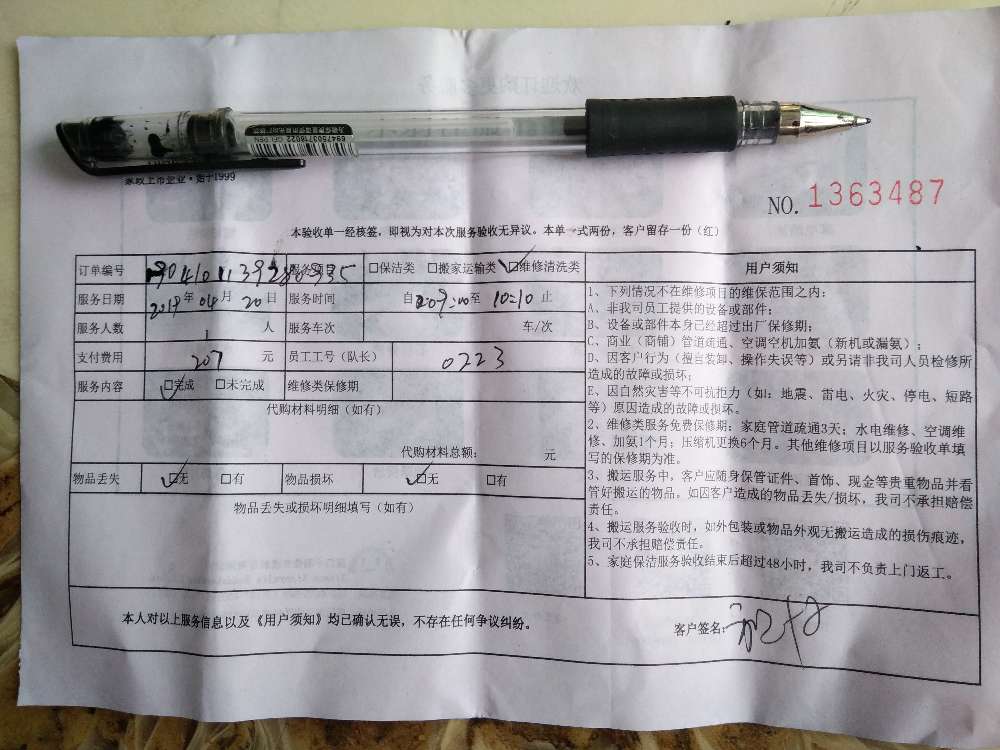 家政上市企业·始于1999
NO. 1363487
本验收单一经核签，即视为对本次服务验收无异议。本单一式两份，客户留存一份（红）
订单编号 服务项目 □保洁类 □搬家运输类 □维修清洗类
服务日期 2019年04月20日 服务时间 自09:00至10:10止
服务人数 1人 服务车次 车/次
支付费用 207元 员工工号（队长） 0223
服务内容 □完成 □未完成 维修类保修期
代购材料明细（如有）
代购材料总额： 元
物品丢失 □无 □有 物品损坏 □无 □有
物品丢失或损坏明细填写（如有）
用户须知
1、下列情况不在维修项目的维保范围之内：
A、非我司员工提供的设备或部件；
B、设备或部件本身已经超过出厂保修期；
C、商业（商铺）管道疏通、空调空机加氨（新机或漏氨）；
D、因客户行为（擅自装卸、操作失误等）或另请非我司人员检修所
造成的故障或损坏；
E、因自然灾害等不可抗拒力（如：地震、雷电、火灾、停电、短路
等）原因造成的故障或损坏。
2、维修类服务免费保修期：家庭管道疏通3天；水电维修、空调维
修、加氨1个月；压缩机更换6个月。其他维修项目以服务验收单填
写的保修期为准。
3、搬运服务中，客户应随身保管证件、首饰、现金等贵重物品并看
管好搬运的物品。如因客户造成的物品丢失/损坏，我司不承担赔偿
责任。
4、搬运服务验收时，如外包装或物品外观无搬运造成的损伤痕迹，
我司不承担赔偿责任。
5、家庭保洁服务验收结束后超过48小时，我司不负责上门返工。
本人对以上服务信息以及《用户须知》均已确认无误，不存在任何争议纠纷。
客户签名：